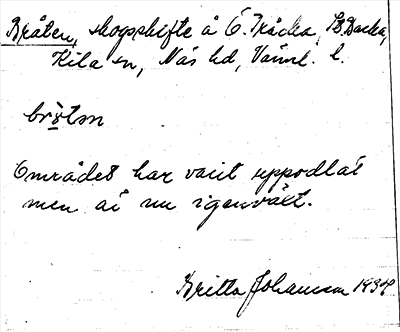 Bråten, skogsskifte å Ö. Tråcka, St. Backa,
Kila sn, Näs hd, Värml. l.
brötәn
Området har varit uppodlat
men är nu igenväxt.
Britta Johansson 1934